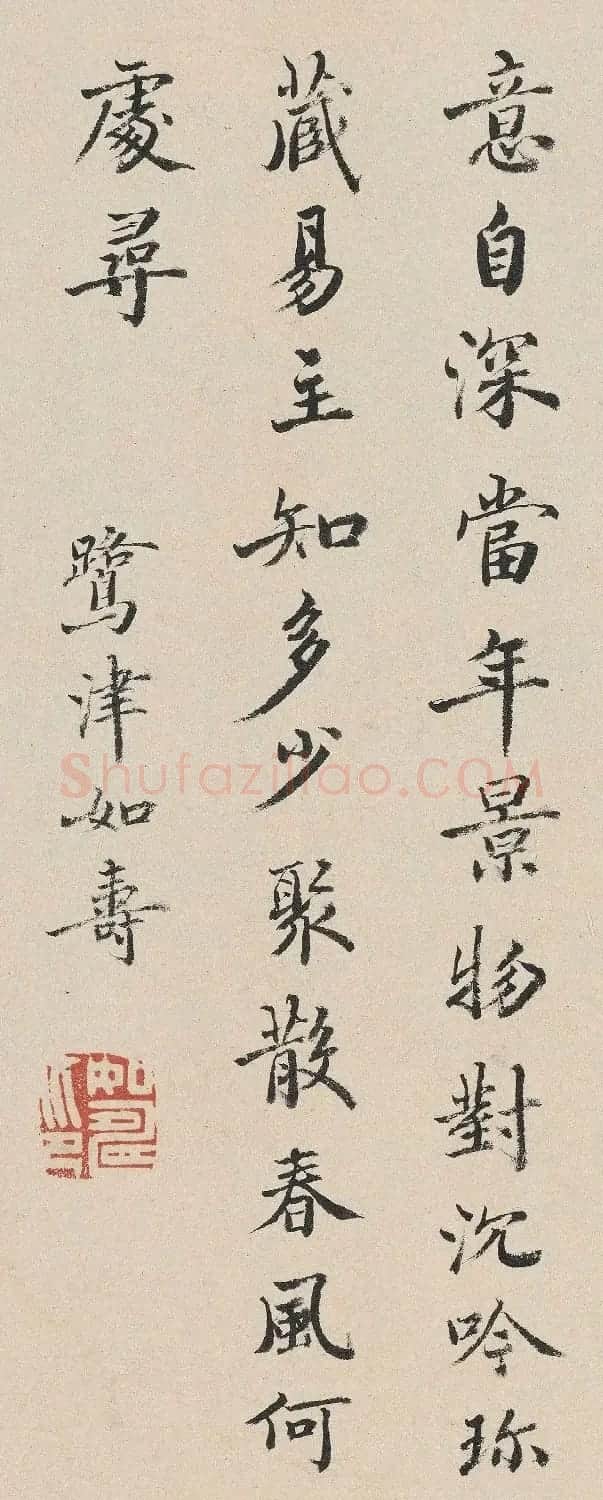 意自深當年景物對沉吟珎
藏易主知多少聚散春風何
處尋
鹭津如壽
Shufaziliao.COM